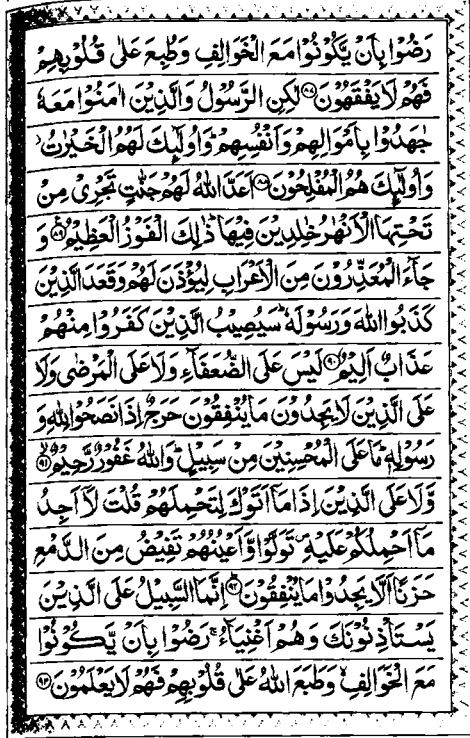 رَضُوْا بِاَنْ يَّكُوْنُوْا مَعَ الْخَوَالِفِ وَطُبِعَ عَلٰى قُلُوْبِهِمْ
فَهُمْ لَا يَفْقَهُوْنَ ۝۸۷ لٰكِنِ الرَّسُوْلُ وَالَّذِيْنَ اٰمَنُوْا مَعَهٗ
جٰهَدُوْا بِاَمْوَالِهِمْ وَاَنْفُسِهِمْ ؕ وَاُولٰٓئِكَ لَهُمُ الْخَيْرٰتُ ؗ
وَاُولٰٓئِكَ هُمُ الْمُفْلِحُوْنَ ۝۸۸ اَعَدَّ اللّٰهُ لَهُمْ جَنّٰتٍ تَجْرِيْ مِنْ
تَحْتِهَا الْاَنْهٰرُ خٰلِدِيْنَ فِيْهَا ؕ ذٰلِكَ الْفَوْزُ الْعَظِيْمُ ۝۸۹ وَ
جَآءَ الْمُعَذِّرُوْنَ مِنَ الْاَعْرَابِ لِيُؤْذَنَ لَهُمْ وَقَعَدَ الَّذِيْنَ
كَذَبُوا اللّٰهَ وَرَسُوْلَهٗ ؕ سَيُصِيْبُ الَّذِيْنَ كَفَرُوْا مِنْهُمْ
عَذَابٌ اَلِيْمٌ ۝۹۰ لَيْسَ عَلَى الضُّعَفَآءِ وَلَا عَلَى الْمَرْضٰى وَلَا
عَلَى الَّذِيْنَ لَا يَجِدُوْنَ مَا يُنْفِقُوْنَ حَرَجٌ اِذَا نَصَحُوْا لِلّٰهِ وَ
رَسُوْلِهٖ ؕ مَا عَلَى الْمُحْسِنِيْنَ مِنْ سَبِيْلٍ ؕ وَاللّٰهُ غَفُوْرٌ رَّحِيْمٌ ۝۹۱
وَّلَا عَلَى الَّذِيْنَ اِذَا مَاۤ اَتَوْكَ لِتَحْمِلَهُمْ قُلْتَ لَاۤ اَجِدُ
مَاۤ اَحْمِلُكُمْ عَلَيْهِ ۪ تَوَلَّوْا وَّاَعْيُنُهُمْ تَفِيْضُ مِنَ الدَّمْعِ
حَزَنًا اَلَّا يَجِدُوْا مَا يُنْفِقُوْنَ ۝۹۲ اِنَّمَا السَّبِيْلُ عَلَى الَّذِيْنَ
يَسْتَاْذِنُوْنَكَ وَهُمْ اَغْنِيَآءُ ۚ رَضُوْا بِاَنْ يَّكُوْنُوْا
مَعَ الْخَوَالِفِ ۙ وَطَبَعَ اللّٰهُ عَلٰى قُلُوْبِهِمْ فَهُمْ لَا يَعْلَمُوْنَ ۝۹۳